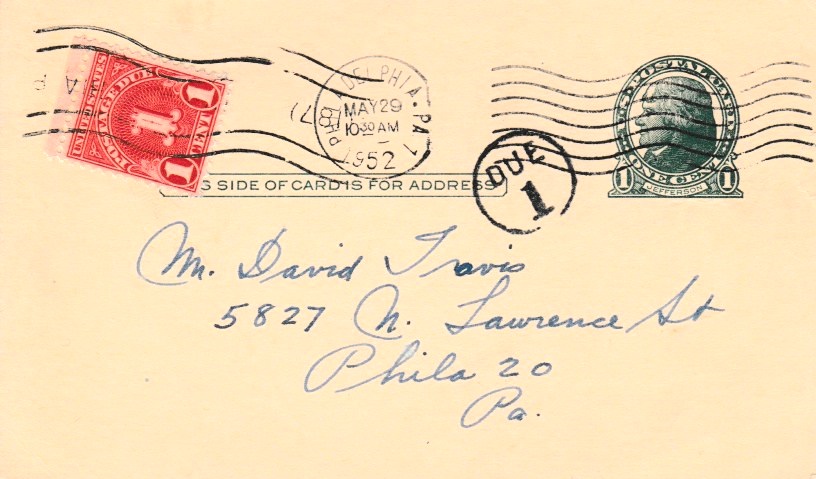 UNITED STATES
POSTAGE DUE
1
1
1
MAY 29
10 30 AM
1952
PA
U.S. POSTAL CARD
ONE CENT
1 1
JEFFERSON
DUE
1
S SIDE OF CARD IS FOR ADDRESS
Mr. David Travis
5827 N. Lawrence St
Phila 20
Pa.